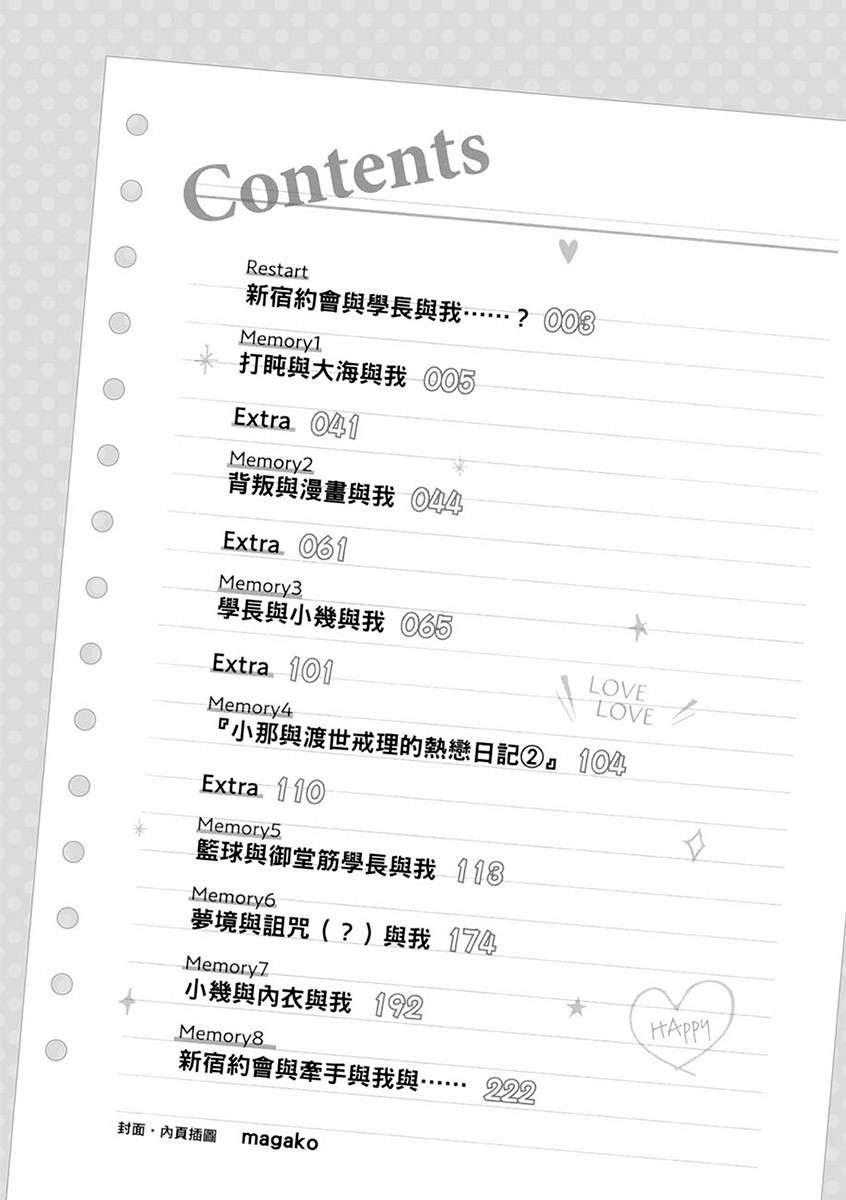 Contents
Restart
新宿約會與學長與我⋯⋯？ 003
Memory1
打盹與大海與我 005
Extra 041
Memory2
背叛與漫畫與我 044
Extra 061
Memory3
學長與小幾與我 065
Extra 101
LOVE
LOVE
Memory4
『小那與渡世戒理的熱戀日記②』 104
Extra 110
Memory5
籃球與御堂筋學長與我 113
Memory6
夢境與詛咒（？）與我 174
Memory7
小幾與內衣與我 192
HAPPY
Memory8
新宿約會與牽手與我與⋯⋯ 222
封面・內頁插圖 magako